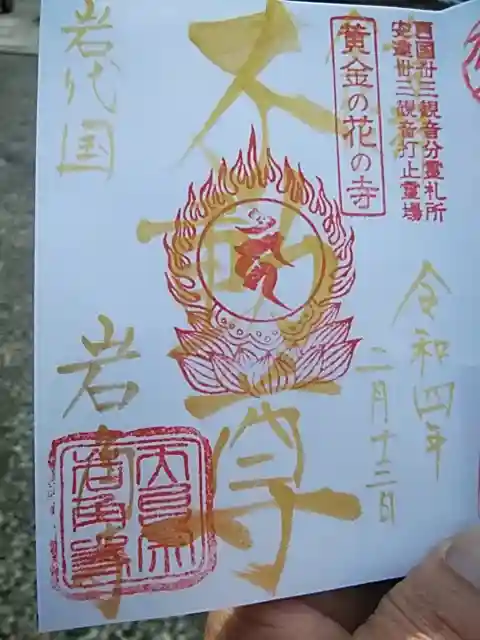 西国卅三観音分霊札所
安達卅三観音打止霊場
黄金の花の寺
令和四年
二月十三日
不動尊
岩代国
岩角寺
天台宗
岩角寺